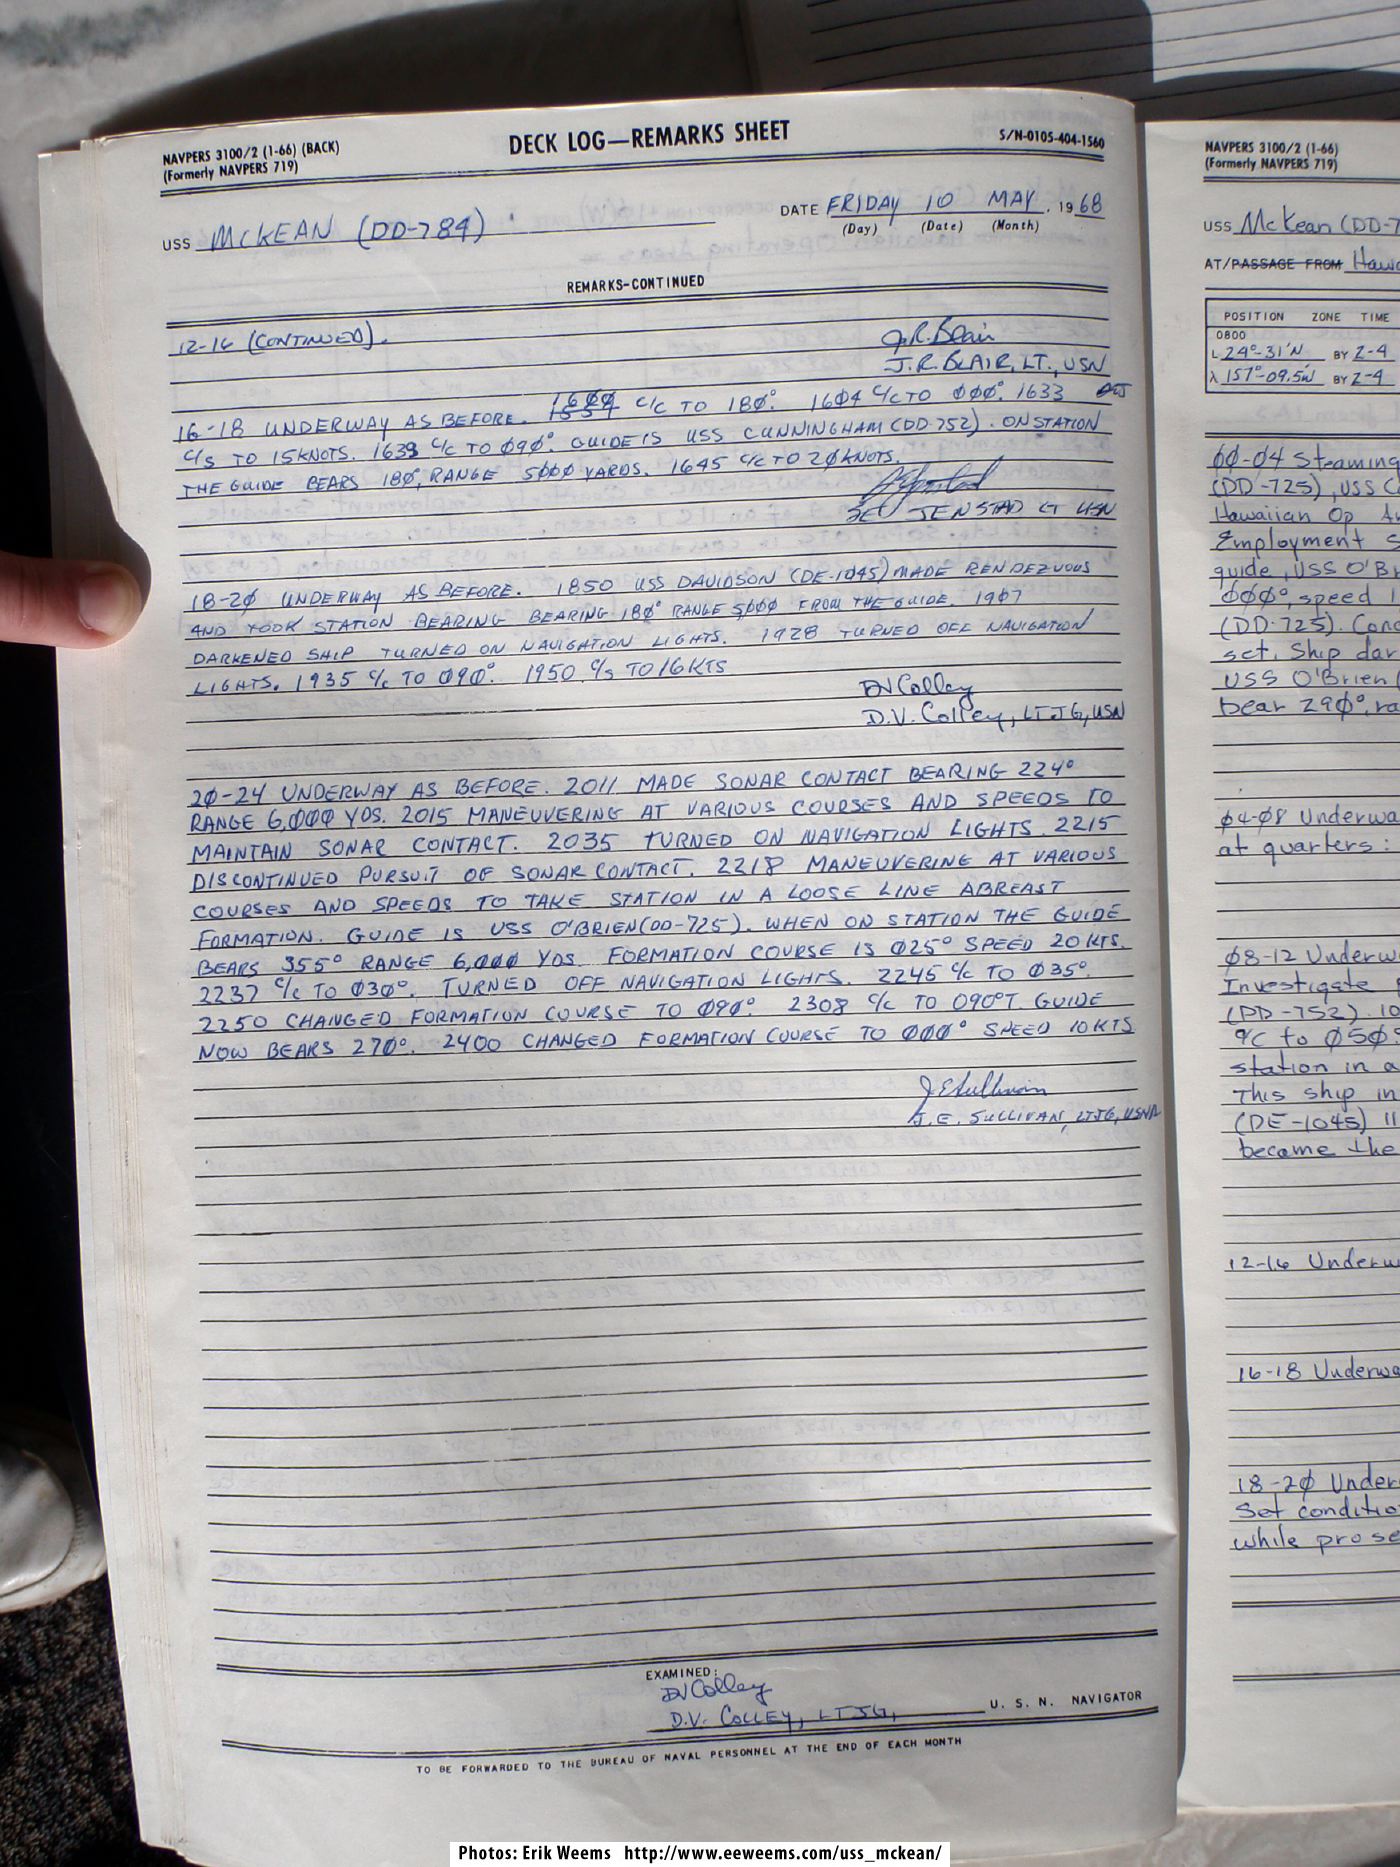 NAVPERS 3100/2 (1-66) (BACK)
(Formerly NAVPERS 719)
DECK LOG—REMARKS SHEET
S/N-0105-404-1560
USS MCKEAN (DD-784)
DATE FRIDAY 10 MAY, 1968
(Day) (Date) (Month)
REMARKS-CONTINUED
12-16 (CONTINUED).
J.R. Blair
J.R. BLAIR, LT., USN
16-18 UNDERWAY AS BEFORE. 1600 C/C TO 180°. 1604 C/C TO 000°. 1633
C/S TO 15 KNOTS. 1639 C/C TO 090°. GUIDE IS USS CUNNINGHAM (DD-752). ON STATION
THE GUIDE BEARS 180°, RANGE 5000 YARDS. 1645 C/C TO 20 KNOTS.
JENSTAD LT USN
18-20 UNDERWAY AS BEFORE. 1850 USS DAVIDSON (DE-1045) MADE RENDEZVOUS
AND TOOK STATION BEARING BEARING 180° RANGE 5,000 FROM THE GUIDE. 1907
DARKENED SHIP TURNED ON NAVIGATION LIGHTS. 1928 TURNED OFF NAVIGATION
LIGHTS. 1935 C/C TO 090°. 1950 C/S TO 16 KTS
DV Colley
D.V. Colley, LTJG, USN
20-24 UNDERWAY AS BEFORE. 2011 MADE SONAR CONTACT BEARING 224°
RANGE 6,000 YDS. 2015 MANEUVERING AT VARIOUS COURSES AND SPEEDS TO
MAINTAIN SONAR CONTACT. 2035 TURNED ON NAVIGATION LIGHTS. 2215
DISCONTINUED PURSUIT OF SONAR CONTACT. 2218 MANEUVERING AT VARIOUS
COURSES AND SPEEDS TO TAKE STATION IN A LOOSE LINE ABREAST
FORMATION. GUIDE IS USS O'BRIEN (DD-725). WHEN ON STATION THE GUIDE
BEARS 355° RANGE 6,000 YDS. FORMATION COURSE IS 025° SPEED 20 KTS.
2237 C/C TO 030°. TURNED OFF NAVIGATION LIGHTS. 2245 C/C TO 035°.
2250 CHANGED FORMATION COURSE TO 090°. 2308 C/C TO 090°T GUIDE
NOW BEARS 270°. 2400 CHANGED FORMATION COURSE TO 000° SPEED 10 KTS
J E Sullivan
J.E. SULLIVAN, LTJG, USNR
EXAMINED:
DV Colley
D.V. COLLEY, LTJG, U. S. N. NAVIGATOR
TO BE FORWARDED TO THE BUREAU OF NAVAL PERSONNEL AT THE END OF EACH MONTH
NAVPERS 3100/2 (1-66)
(Formerly NAVPERS 719)
USS McKean (DD-7
AT/PASSAGE FROM Hawa
POSITION ZONE TIME
0800
L 24°-31'N BY Z-4
λ 157°-09.5W BY Z-4
00-04 Steaming
(DD-725), USS C
Hawaiian Op A
Employment S
guide, USS O'Br
000°, speed 1
(DD-725). Cond
set. Ship dar
USS O'Brien (
bear 290°, ra
04-08 Underwa
at quarters:
08-12 Underw
Investigate
(DD-752). 10
C/C to 050°
station in a
This ship in
(DE-1045) 11
became the
12-16 Underw
16-18 Underwa
18-20 Under
Set conditio
while prose
Photos: Erik Weems http://www.eeweems.com/uss_mckean/